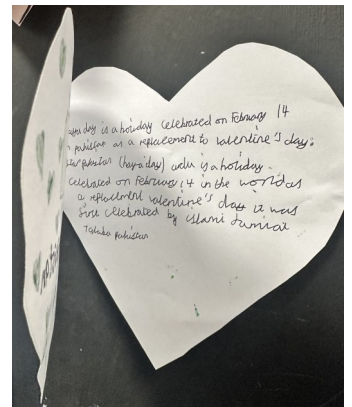 day is a holiday celebrated on February 14
pakistan as a replacement to valentine's day.
pakistan (haya day) is a holiday.
celebrated on February 14 in the world as
a replacment valentine's day it was
first celebrated by islami Jamiat
Talaba pakistan